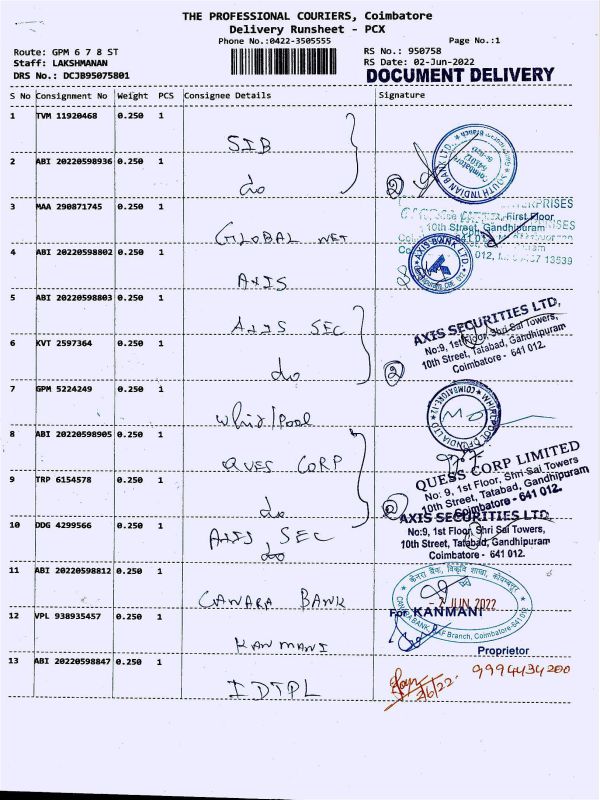 THE PROFESSIONAL COURIERS, Coimbatore
Delivery Runsheet - PCX
Phone No.:0422-3505555
Page No.:1
Route: GPM 6 7 8 ST
RS No.: 950758
Staff: LAKSHMANAN
RS Date: 02-Jun-2022
DRS No.: DCJB95075801
DOCUMENT DELIVERY
S No Consignment No Weight PCS Consignee Details Signature
1 TVM 11920468 0.250 1 SIB
SOUTH INDIAN BANK LTD.
2 ABI 20220598936 0.250 1 do
2
3 MAA 290871745 0.250 1 GLOBAL NET
First Floor
10th Street, Gandhipuram
4 ABI 20220598802 0.250 1 AXIS
AXIS BANK LTD.
5 ABI 20220598803 0.250 1 AXIS SEC
AXIS SECURITIES LTD,
No:9, 1st Floor, Shri Sai Towers,
10th Street, Tatabad, Gandhipuram
Coimbatore - 641 012.
6 KVT 2597364 0.250 1 do
2
7 GPM 5224249 0.250 1 Whirlpool
WHIRLPOOL OF INDIA LTD
COIMBATORE-12
8 ABI 20220598905 0.250 1 QUES CORP
QUESS CORP LIMITED
No: 9, 1st Floor, Shri Sai Towers
10th Street, Tatabad, Gandhipuram
Coimbatore - 641 012.
9 TRP 6154578 0.250 1 do
2
10 DDG 4299566 0.250 1 AXIS SEC
do
AXIS SECURITIES LTD,
No:9, 1st Floor, Shri Sai Towers,
10th Street, Tatabad, Gandhipuram
Coimbatore - 641 012.
11 ABI 20220598812 0.250 1 CANARA BANK
केनरा बैंक,
CANARA BANK
2 JUN 2022
Branch, Coimbatore-641
12 VPL 938935457 0.250 1 KANMANI
For KANMANI
Proprietor
13 ABI 20220598847 0.250 1 IDTPL
9994434200
2/6/22.